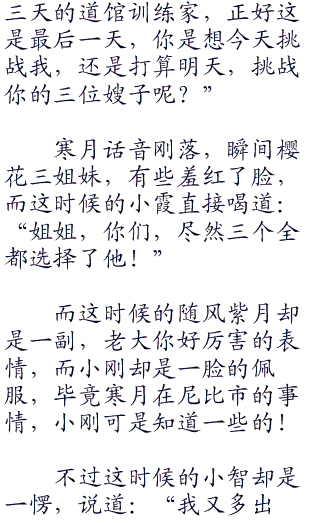 三天的道馆训练家，正好这
是最后一天，你是想今天挑
战我，还是打算明天，挑战
你的三位嫂子呢？”
寒月话音刚落，瞬间樱
花三姐妹，有些羞红了脸，
而这时候的小霞直接喝道：
“姐姐，你们，尽然三个全
都选择了他！”
而这时候的随风紫月却
是一副，老大你好厉害的表
情，而小刚却是一脸的佩
服，毕竟寒月在尼比市的事
情，小刚可是知道一些的！
不过这时候的小智却是
一愣，说道：“我又多出